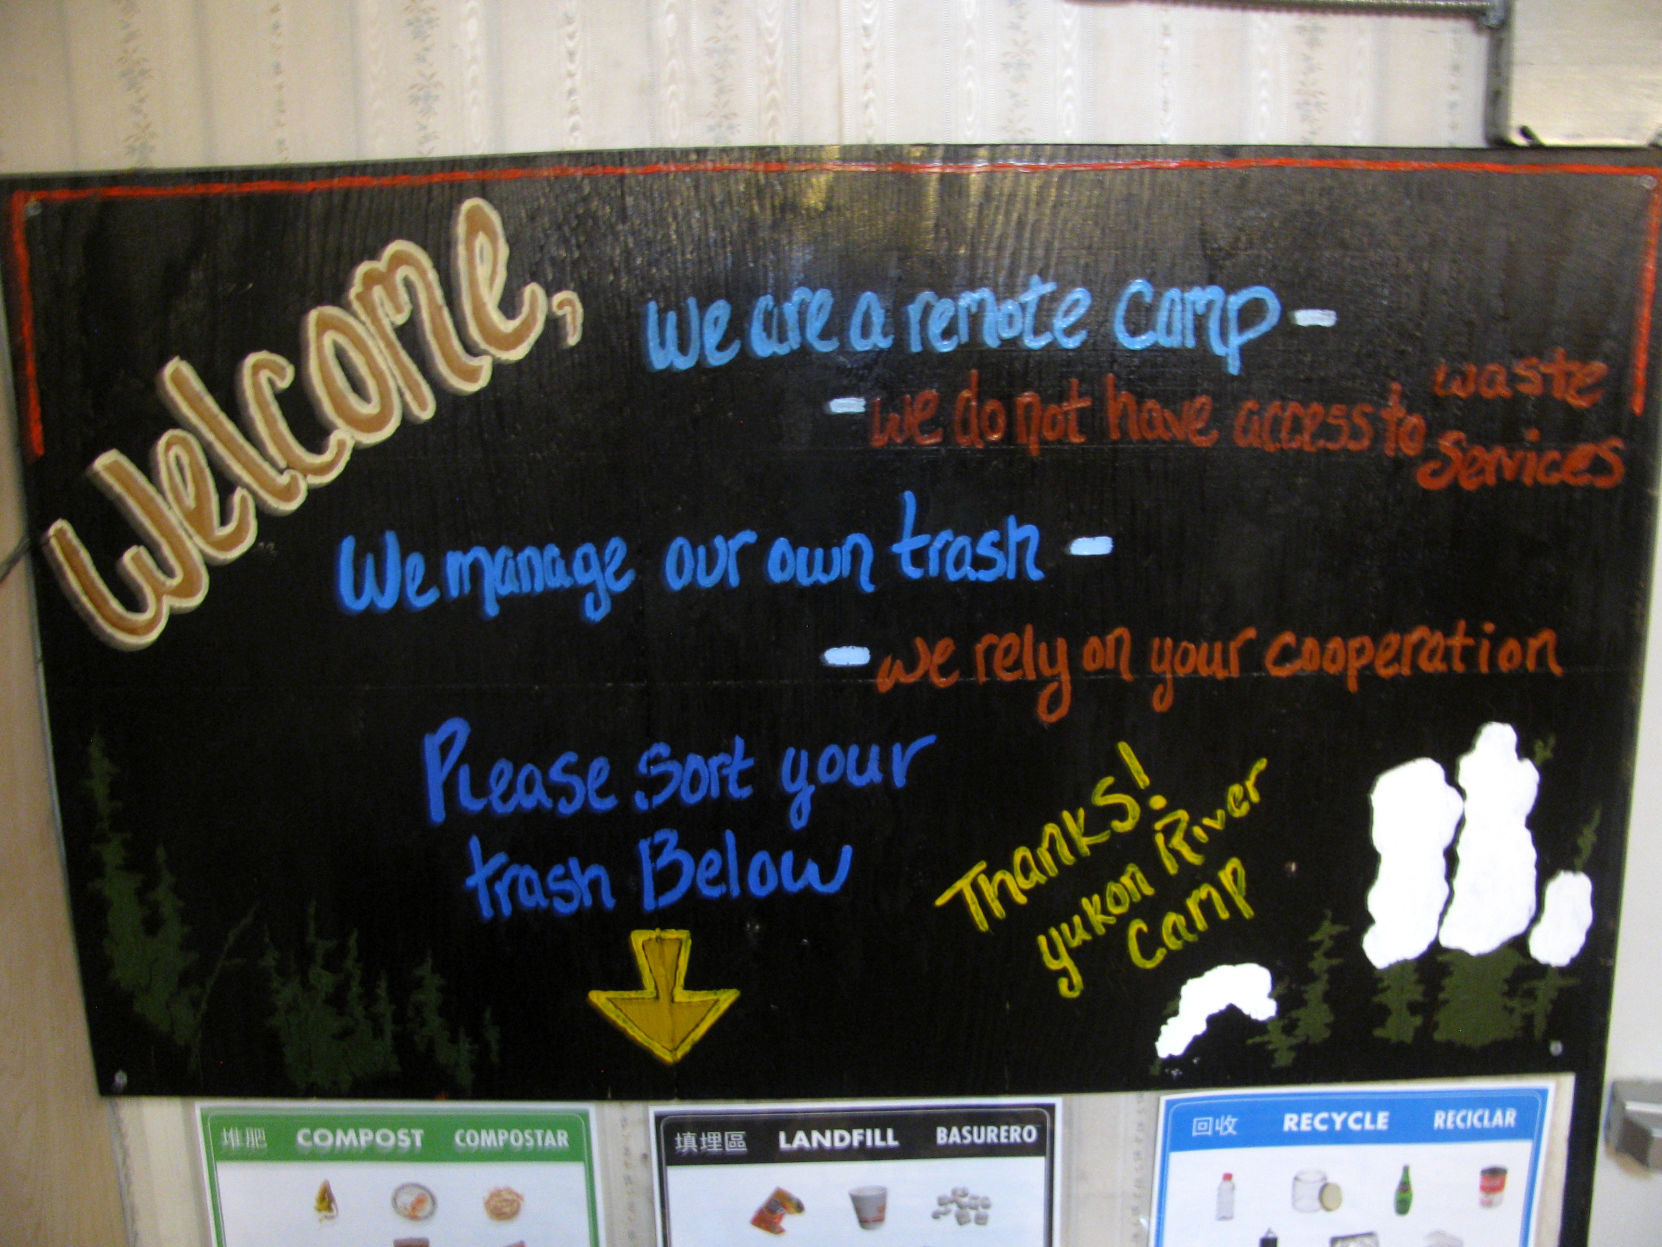 Welcome,
We are a remote camp -
- we do not have access to waste services
We manage our own trash -
- we rely on your cooperation
Please sort your
trash Below
Thanks!
Yukon River
Camp
堆肥 COMPOST COMPOSTAR
填埋區 LANDFILL BASURERO
回收 RECYCLE RECICLAR